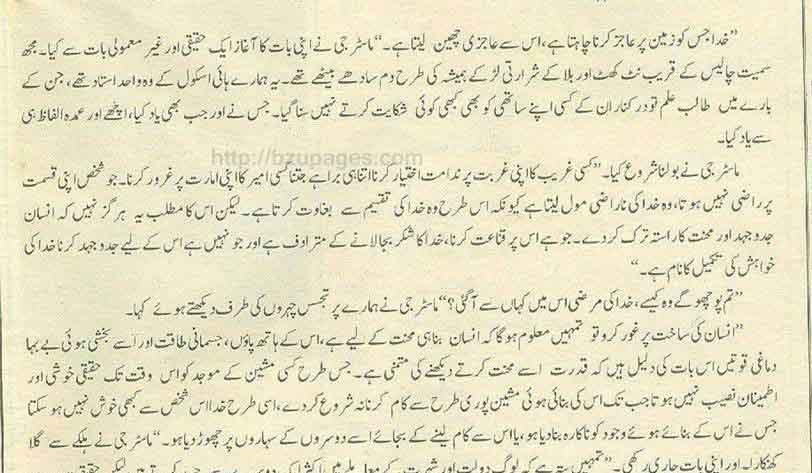 ”خدا جس کو زمین پر عاجز کرنا چاہتا ہے، اس سے عاجزی چھین لیتا ہے۔“ ماسٹر جی نے اپنی بات کا آغاز ایک حقیقی اور غیر معمولی بات سے کیا۔ مجھ
سمیت چالیس کے قریب نٹ کھٹ اور بلا کے شرارتی لڑکے ہمیشہ کی طرح دم سادھے بیٹھے تھے۔ یہ ہمارے ہائی اسکول کے وہ واحد استاد تھے، جن کے
بارے میں طالب علم تو درکنار ان کے کسی اپنے ساتھی کو بھی کبھی کوئی شکایت کرتے نہیں سنا گیا۔ جس نے اور جب بھی یاد کیا، اچھے اور عمدہ الفاظ ہی
سے یاد کیا۔
http://bzupages.com
ماسٹر جی نے بولنا شروع کیا۔ ”کسی غریب کا اپنی غربت پر ندامت اختیار کرنا اتنا ہی برا ہے جتنا کسی امیر کا اپنی امارت پر غرور کرنا۔ جو شخص اپنی قسمت
پر راضی نہیں ہوتا، وہ خدا کی ناراضی مول لیتا ہے کیونکہ اس طرح وہ خدا کی تقسیم سے بغاوت کرتا ہے۔ لیکن اس کا مطلب یہ ہرگز نہیں کہ انسان
جدوجہد اور محنت کا راستہ ترک کردے۔ جو ہے اس پر قناعت کرنا، خدا کا شکر بجالانے کے مترادف ہے اور جو نہیں ہے اس کے لیے جدوجہد کرنا خدا کی
خواہش کی تکمیل کا نام ہے۔“
”تم پوچھو گے وہ کیسے، خدا کی مرضی اس میں کہاں سے آگئی؟“ ماسٹر جی نے ہمارے پرتجسس چہروں کی طرف دیکھتے ہوئے کہا۔
”انسان کی ساخت پر غور کرو تو تمہیں معلوم ہوگا کہ انسان بنا ہی محنت کے لیے ہے، اس کے ہاتھ پاؤں، جسمانی طاقت اور اُسے بخشی ہوئی بے بہا
دماغی قوتیں اس بات کی دلیل ہیں کہ قدرت اسے محنت کرتے دیکھنے کی متمنی ہے۔ جس طرح کسی مشین کے موجد کو اس وقت تک حقیقی خوشی اور
اطمینان نصیب نہیں ہوتا جب تک اس کی بنائی ہوئی مشین پوری طرح سے کام کرنا نہ شروع کردے، اسی طرح خدا اس شخص سے کبھی خوش نہیں ہوسکتا
جس نے اس کے بنائے ہوئے وجود کو ناکارہ بنادیا ہو، یا اس سے کام لینے کے بجائے اسے دوسروں کے سہاروں پر چھوڑ دیا ہو۔“ ماسٹر جی نے ہلکے سے گلا
کھنکارا۔ اور اپنی بات جاری رکھی۔ ”تمہیں پتہ ہے کہ لوگ دولت اور شہرت کے معاملے میں اکثر ایک دوسرے سے